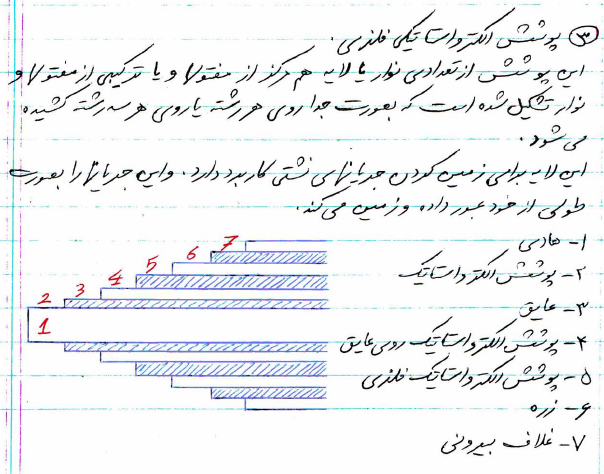 ③ پوشش الکترواستاتیکی فلزی.
این پوشش از تعدادی نوار یا لایه هم مرکز از مفتولها و یا ترکیبی از مفتولها و
نوار تشکیل شده است که بصورت جدا روی هر رشته یا روی هر سه رشته کشیده
می شود.
این لایه برای زمین کردن جریانهای نشتی کاربرد دارد. و این جریانها را بصورت
طولی از خود عبور داده و زمین می کند.
۱- هادی
۲- پوشش الکترواستاتیک
۳- عایق
۴- پوشش الکترواستاتیک روی عایق
۵- پوشش الکترواستاتیک فلزی
۶- زره
۷- غلاف بیرونی
7
6
5
4
3
2
1